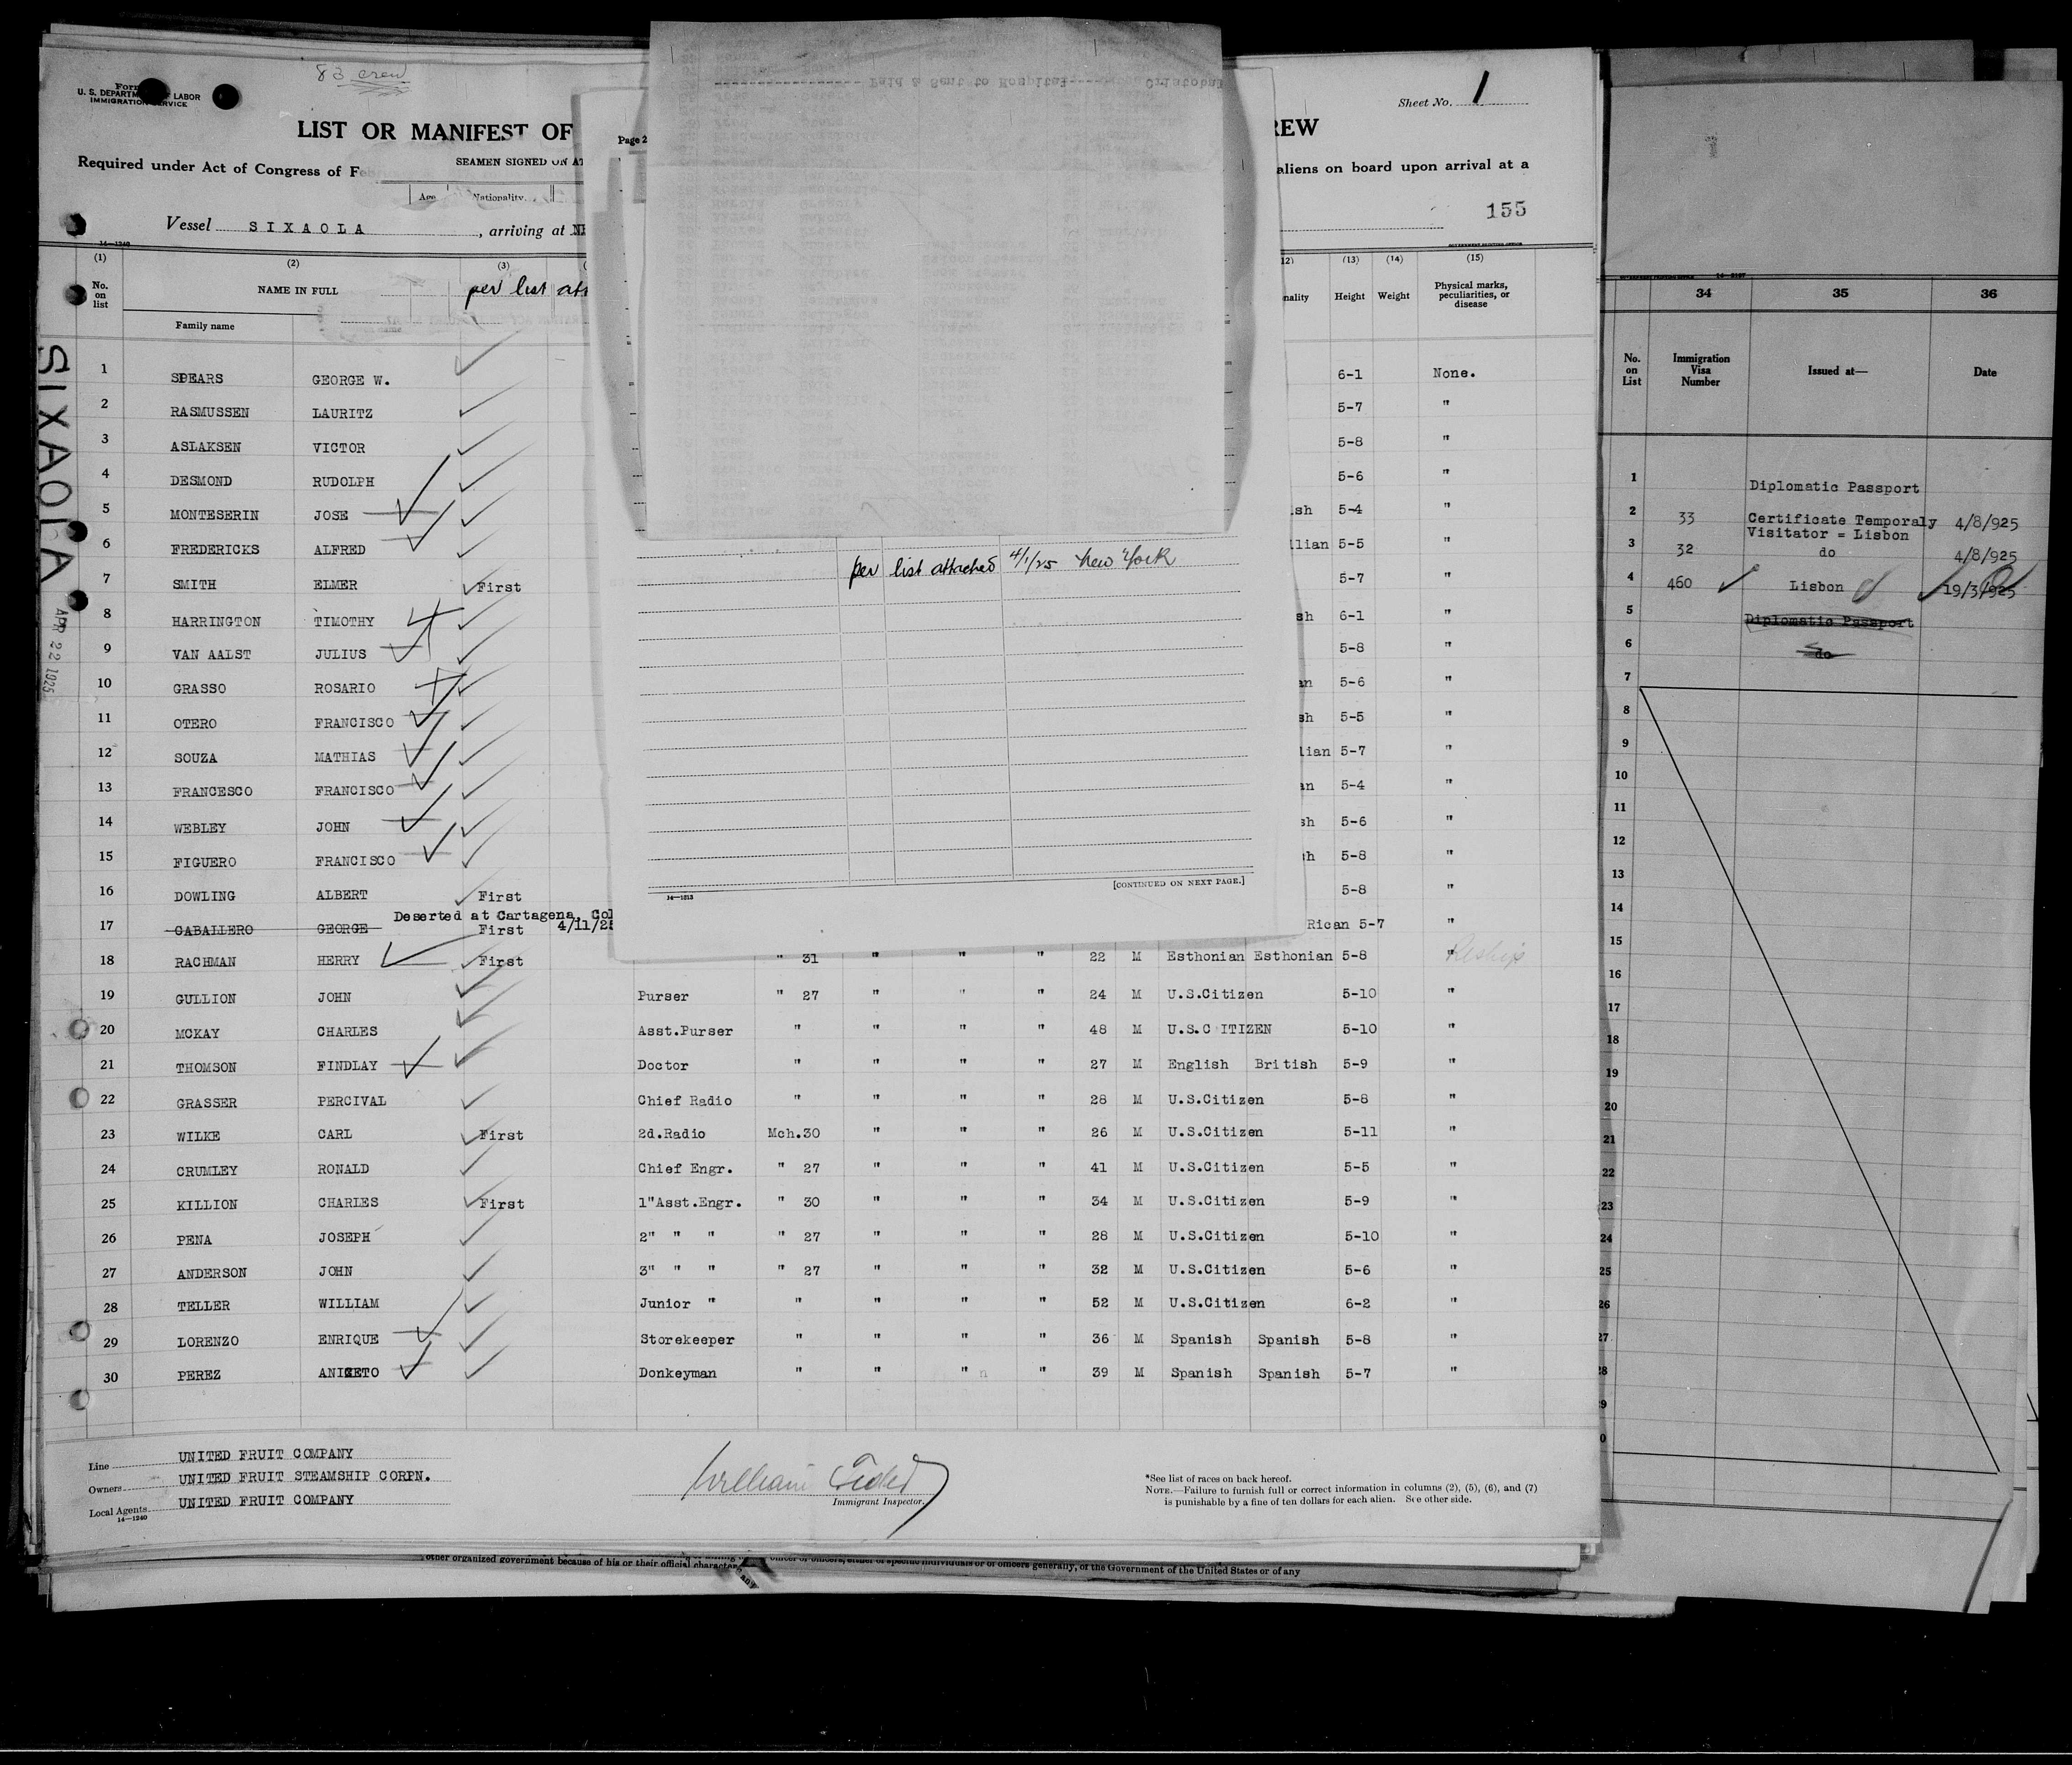 83 crew
U. S. DEPARTM LABOR
IMMIGRATION SERVICE
LIST OR MANIFEST OF
Required under Act of Congress of Febr
SEAMEN SIGNED ON AT
Age Nationality
Vessel SIXAOLA, arriving at NE
14—1240
(1) (2) (3)
No. on list
NAME IN FULL
per list att
Family name
SIXAOLA
APR 22 1925
1 SPEARS GEORGE W.
2 RASMUSSEN LAURITZ
3 ASLAKSEN VICTOR
4 DESMOND RUDOLPH
5 MONTESERIN JOSE
6 FREDERICKS ALFRED
7 SMITH ELMER First
8 HARRINGTON TIMOTHY
9 VAN AALST JULIUS
10 GRASSO ROSARIO
11 OTERO FRANCISCO
12 SOUZA MATHIAS
13 FRANCESCO FRANCISCO
14 WEBLEY JOHN
15 FIGUERO FRANCISCO
16 DOWLING ALBERT First
Deserted at Cartagena, Col
17 CABALLERO GEORGE First 4/11/25
18 RACHMAN HERRY First " 31 " " " 22 M Esthonian Esthonian 5-8 "
19 GULLION JOHN Purser " 27 " " " 24 M U.S.Citizen 5-10 "
20 MCKAY CHARLES Asst.Purser " " " " 48 M U.S.C ITIZEN 5-10 "
21 THOMSON FINDLAY Doctor " " " " 27 M English British 5-9 "
22 GRASSER PERCIVAL Chief Radio " " " " 28 M U.S.Citizen 5-8 "
23 WILKE CARL First 2d.Radio Mch.30 " " " 26 M U.S.Citizen 5-11 "
24 CRUMLEY RONALD Chief Engr. " 27 " " " 41 M U.S.Citizen 5-5 "
25 KILLION CHARLES First 1"Asst.Engr. " 30 " " " 34 M U.S.Citizen 5-9 "
26 PENA JOSEPH 2" " " " 27 " " " 28 M U.S.Citizen 5-10 "
27 ANDERSON JOHN 3" " " " 27 " " " 32 M U.S.Citizen 5-6 "
28 TELLER WILLIAM Junior " " " " " 52 M U.S.Citizen 6-2 "
29 LORENZO ENRIQUE Storekeeper " " " " 36 M Spanish Spanish 5-8 "
30 PEREZ ANICETO Donkeyman " " " " 39 M Spanish Spanish 5-7 "
Line UNITED FRUIT COMPANY
Owners UNITED FRUIT STEAMSHIP CORPN.
Local Agents UNITED FRUIT COMPANY
14—1240
William
Immigrant Inspector.
*See list of races on back hereof.
NOTE.—Failure to furnish full or correct information in columns (2), (5), (6), and (7)
is punishable by a fine of ten dollars for each alien. See other side.
Page 2
Paid & Sent to Hospital Cristobal
per list attached 4/1/25 New York
[CONTINUED ON NEXT PAGE.]
14—1313
Sheet No. 1
REW
aliens on board upon arrival at a
155
GOVERNMENT PRINTING OFFICE
12) (13) (14) (15)
nality Height Weight Physical marks, peculiarities, or disease
6-1 None.
5-7 "
5-8 "
5-6 "
sh 5-4 "
lian 5-5 "
5-7 "
sh 6-1 "
5-8 "
an 5-6 "
sh 5-5 "
lian 5-7 "
an 5-4 "
sh 5-6 "
h 5-8 "
5-8 "
Rican 5-7 "
Reship
34 35 36
No. on List
Immigration Visa Number
Issued at—
Date
1 Diplomatic Passport
2 33 Certificate Temporaly 4/8/925
Visitator = Lisbon
3 32 do 4/8/925
4 460 Lisbon 19/3/925
5 Diplomatic Passport
6 do
7
8
9
10
11
12
13
14
15
16
17
18
19
20
21
22
23
24
25
26
27
28
9
0
other organized government because of his or their official character
officer or officers, either of specific individuals or of officers generally, of the Government of the United States or of any